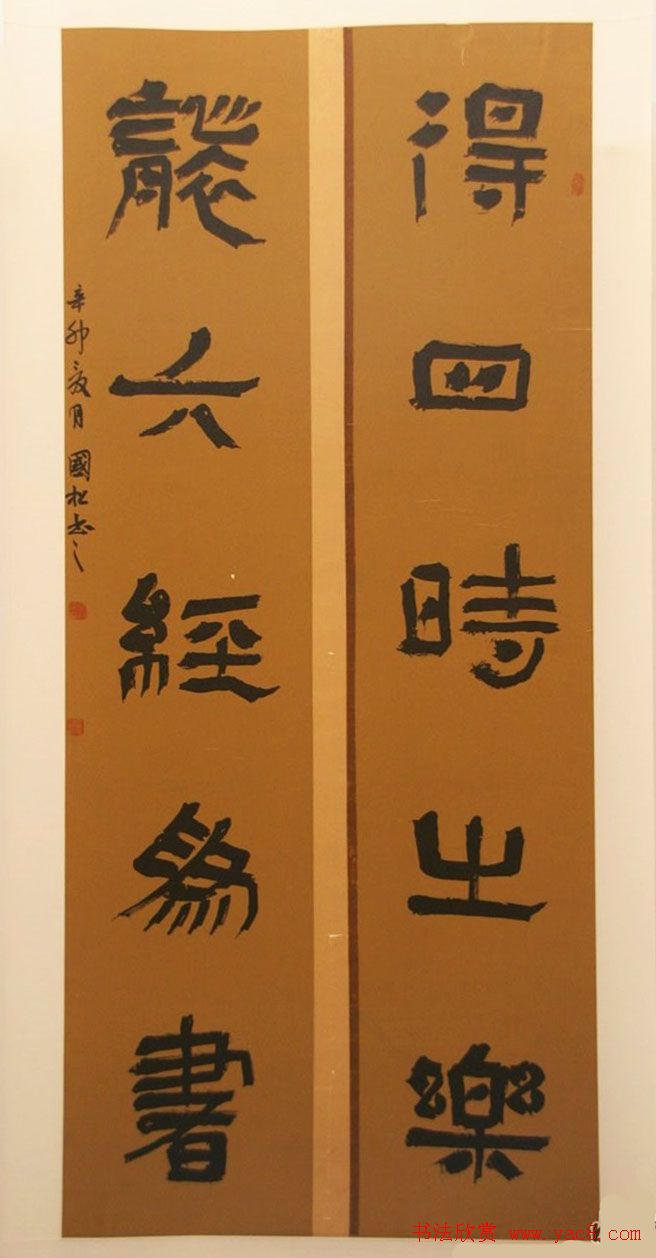 得四時之樂
六經為書
辛卯夏月 國松書之
书法欣赏 www.yac8.com